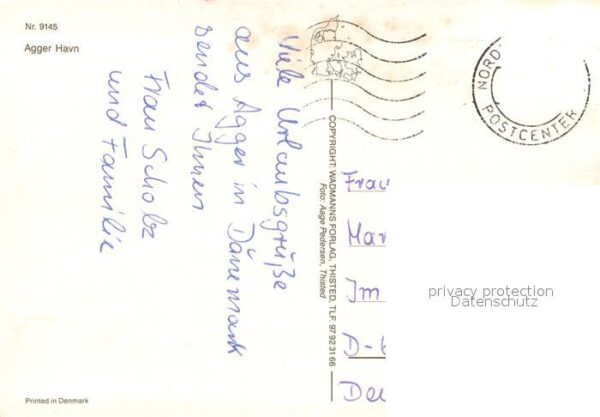 Nr. 9145
Agger Havn
Viele Urlaubsgrüße
aus Agger in Dänemark
sendet Ihnen
Frau Scholz
und Familie
COPYRIGHT: WADMANNS FORLAG, THISTED, TLF. 97 92 31 66
Foto: Aage Pedersen, Thisted
NORD
POSTCENTER
Frau
Mar
Im
D-
privacy protection
Datenschutz
Printed in Denmark